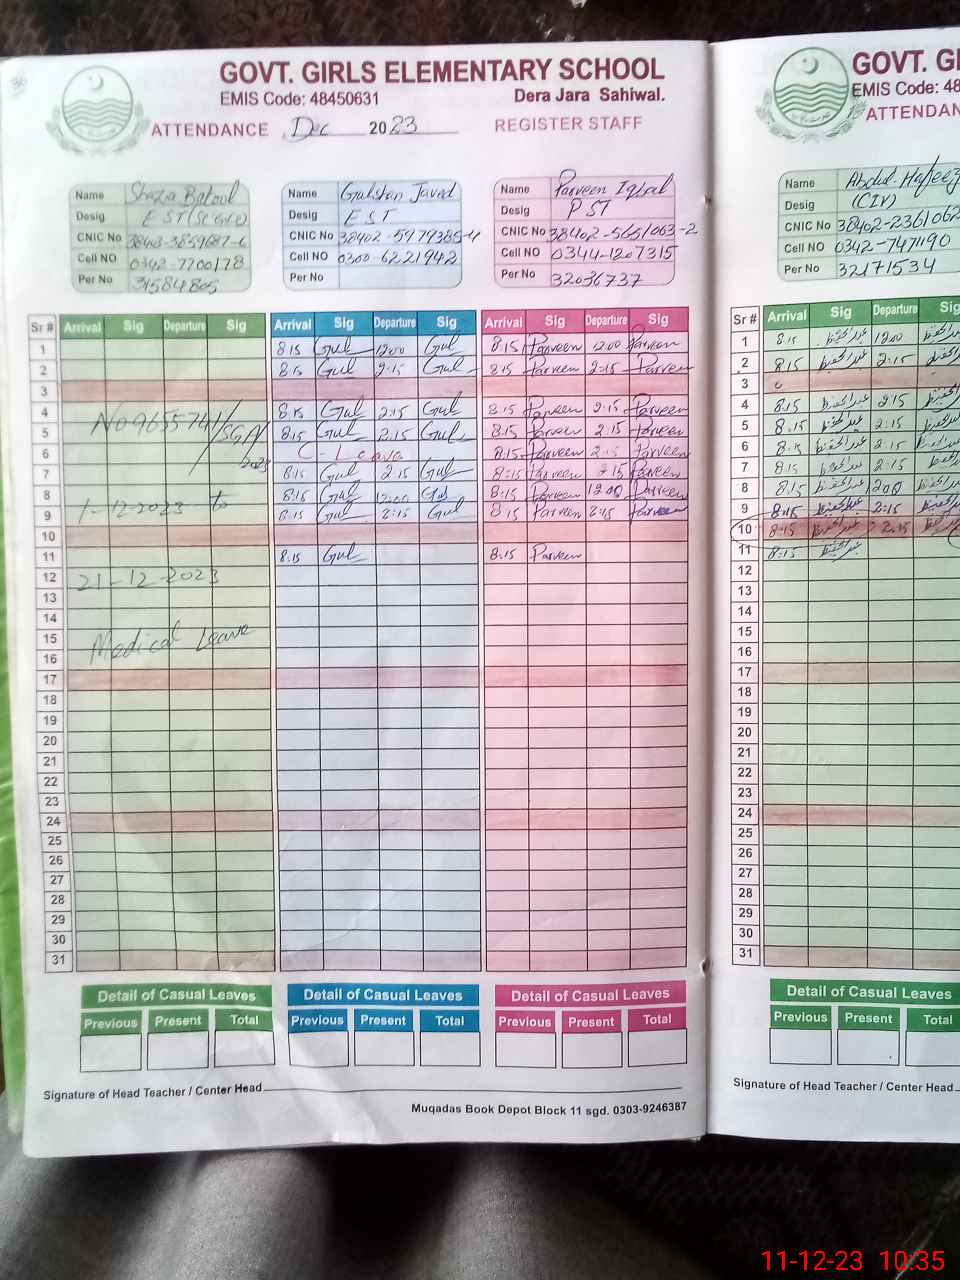 GOVT. GIRLS ELEMENTARY SCHOOL
EMIS Code: 48450631 Dera Jara Sahiwal.
ATTENDANCE Dec 2023 REGISTER STAFF
Name Shazia Batool
Desig EST
CNIC No
Cell NO 0342-7700178
Per No 31584805
Name Gulshan Javed
Desig EST
CNIC No 38402-5979385-4
Cell NO 0300-6221942
Per No
Name Parveen Iqbal
Desig PST
CNIC No 38402-5651063-2
Cell NO 0344-1207315
Per No 32036737
Sr # Arrival Sig Departure Sig Arrival Sig Departure Sig Arrival Sig Departure Sig
1 8:15 Gul 12:00 Gul 8:15 Parveen 12:00 Parveen
2 8:15 Gul 2:15 Gul 8:15 Parveen 2:15 Parveen
3
4 8:15 Gul 2:15 Gul 8:15 Parveen 2:15 Parveen
5 No 9655741/SGA/2023 8:15 Gul 2:15 Gul 8:15 Parveen 2:15 Parveen
6 C-Leave 8:15 Parveen 2:15 Parveen
7 8:15 Gul 2:15 Gul 8:15 Parveen 2:15 Parveen
8 8:15 Gul 12:00 Gul 8:15 Parveen 12:00 Parveen
9 1-12-2023 to 8:15 Gul 2:15 Gul 8:15 Parveen 2:15 Parveen
10
11 8:15 Gul 8:15 Parveen
12 21-12-2023
13
14
15 Medical Leave
16
17
18
19
20
21
22
23
24
25
26
27
28
29
30
31
Detail of Casual Leaves Detail of Casual Leaves Detail of Casual Leaves
Previous Present Total Previous Present Total Previous Present Total
Signature of Head Teacher / Center Head
Muqadas Book Depot Block 11 sgd. 0303-9246387
GOVT. GI
EMIS Code: 48
ATTENDAN
Name Abdul Hafeez
Desig (CIV)
CNIC No 38402-2361062
Cell NO 0342-7471190
Per No 32171534
Sr # Arrival Sig Departure Sig
1 8:15 عبدالحفیظ 12:00
2 8:15 عبدالحفیظ 2:15
3
4 8:15 عبدالحفیظ 2:15
5 8:15 عبدالحفیظ 2:15
6 8:15 عبدالحفیظ 2:15
7 8:15 عبدالحفیظ 2:15
8 8:15 عبدالحفیظ
9 8:15 عبدالحفیظ 2:15
10 8:15 عبدالحفیظ 2:15
11 8:15 عبدالحفیظ
12
13
14
15
16
17
18
19
20
21
22
23
24
25
26
27
28
29
30
31
Detail of Casual Leaves
Previous Present Total
Signature of Head Teacher / Center Head
11-12-23 10:35